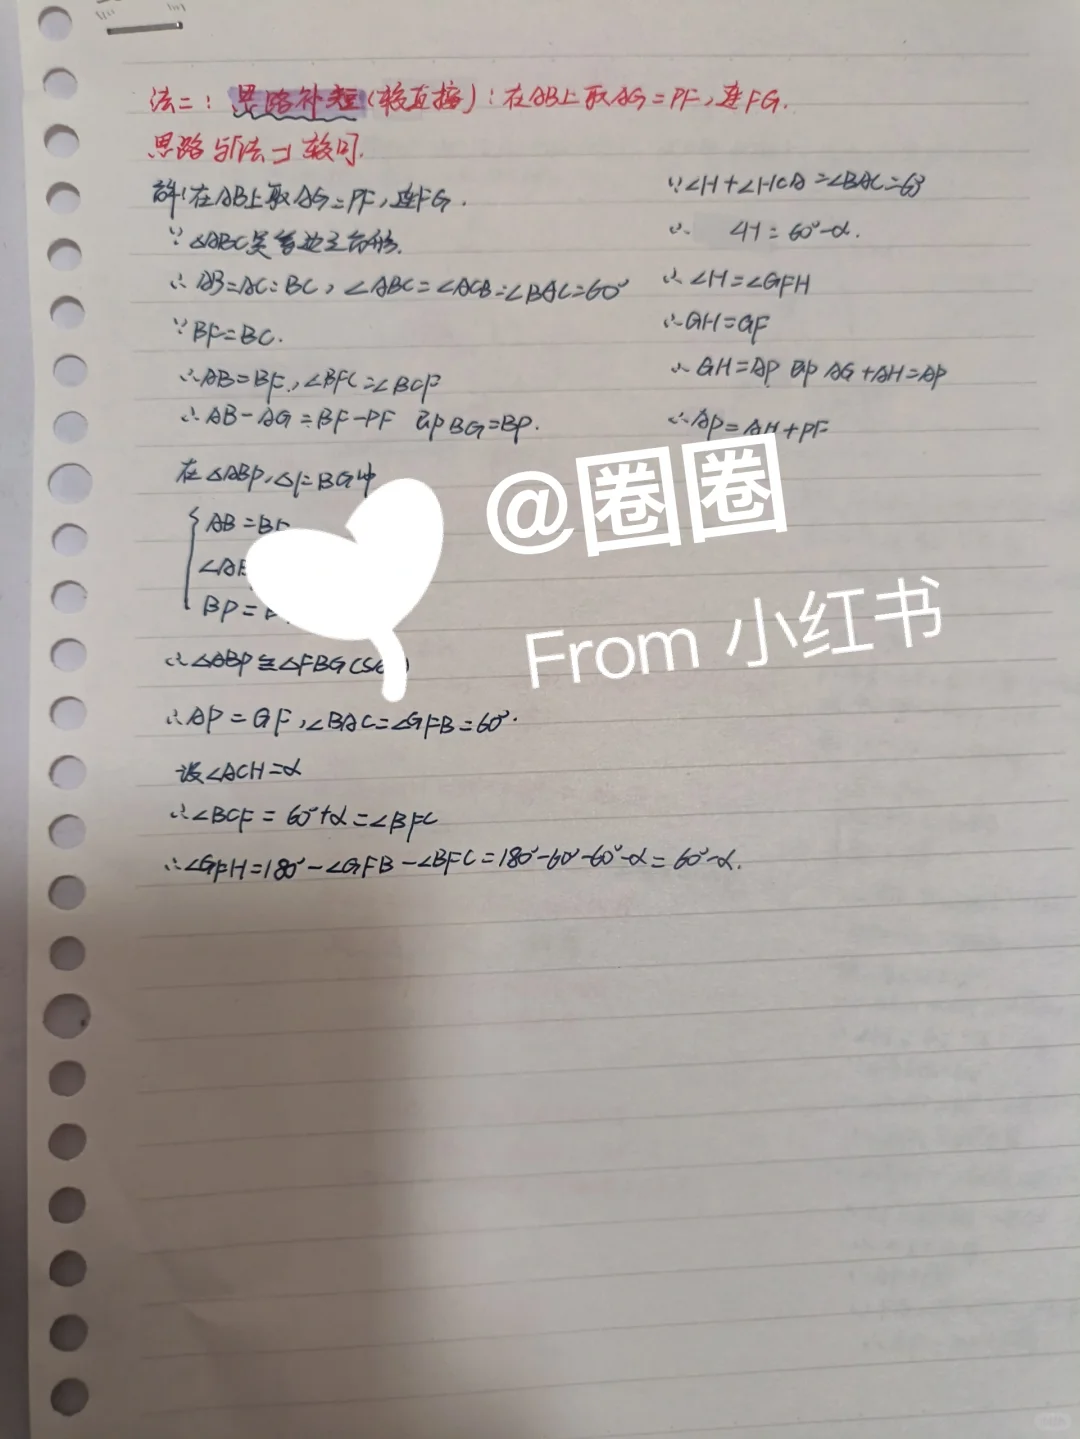 法二：思路补短(较直接)：在AB上取AG=PF,连FG.
思路与「法一」较同.
解：在AB上取AG=PF,连FG.
∵△ABC是等边三角形.
∴AB=AC=BC,∠ABC=∠ACB=∠BAC=60°
∵BF=BC.
∴AB=BF,∠BFC=∠BCF
∴AB-AG=BF-PF 即BG=BP.
在△ABP,△FBG中
AB=BF
∠AB
BP=B
∴△ABP≌△FBG(SA
∴AP=GF,∠BAC=∠GFB=60°.
设∠ACH=α
∴∠BCF=60°+α=∠BFC
∴∠GFH=180°-∠GFB-∠BFC=180°-60°-60°-α=60°-α.
∵∠H+∠HCA=∠BAC=60°
∴ ∠H=60°-α.
∴∠H=∠GFH
∴GH=GF
∴GH=AP 即AG+AH=AP
∴AP=AH+PF
@圈圈
From 小红书